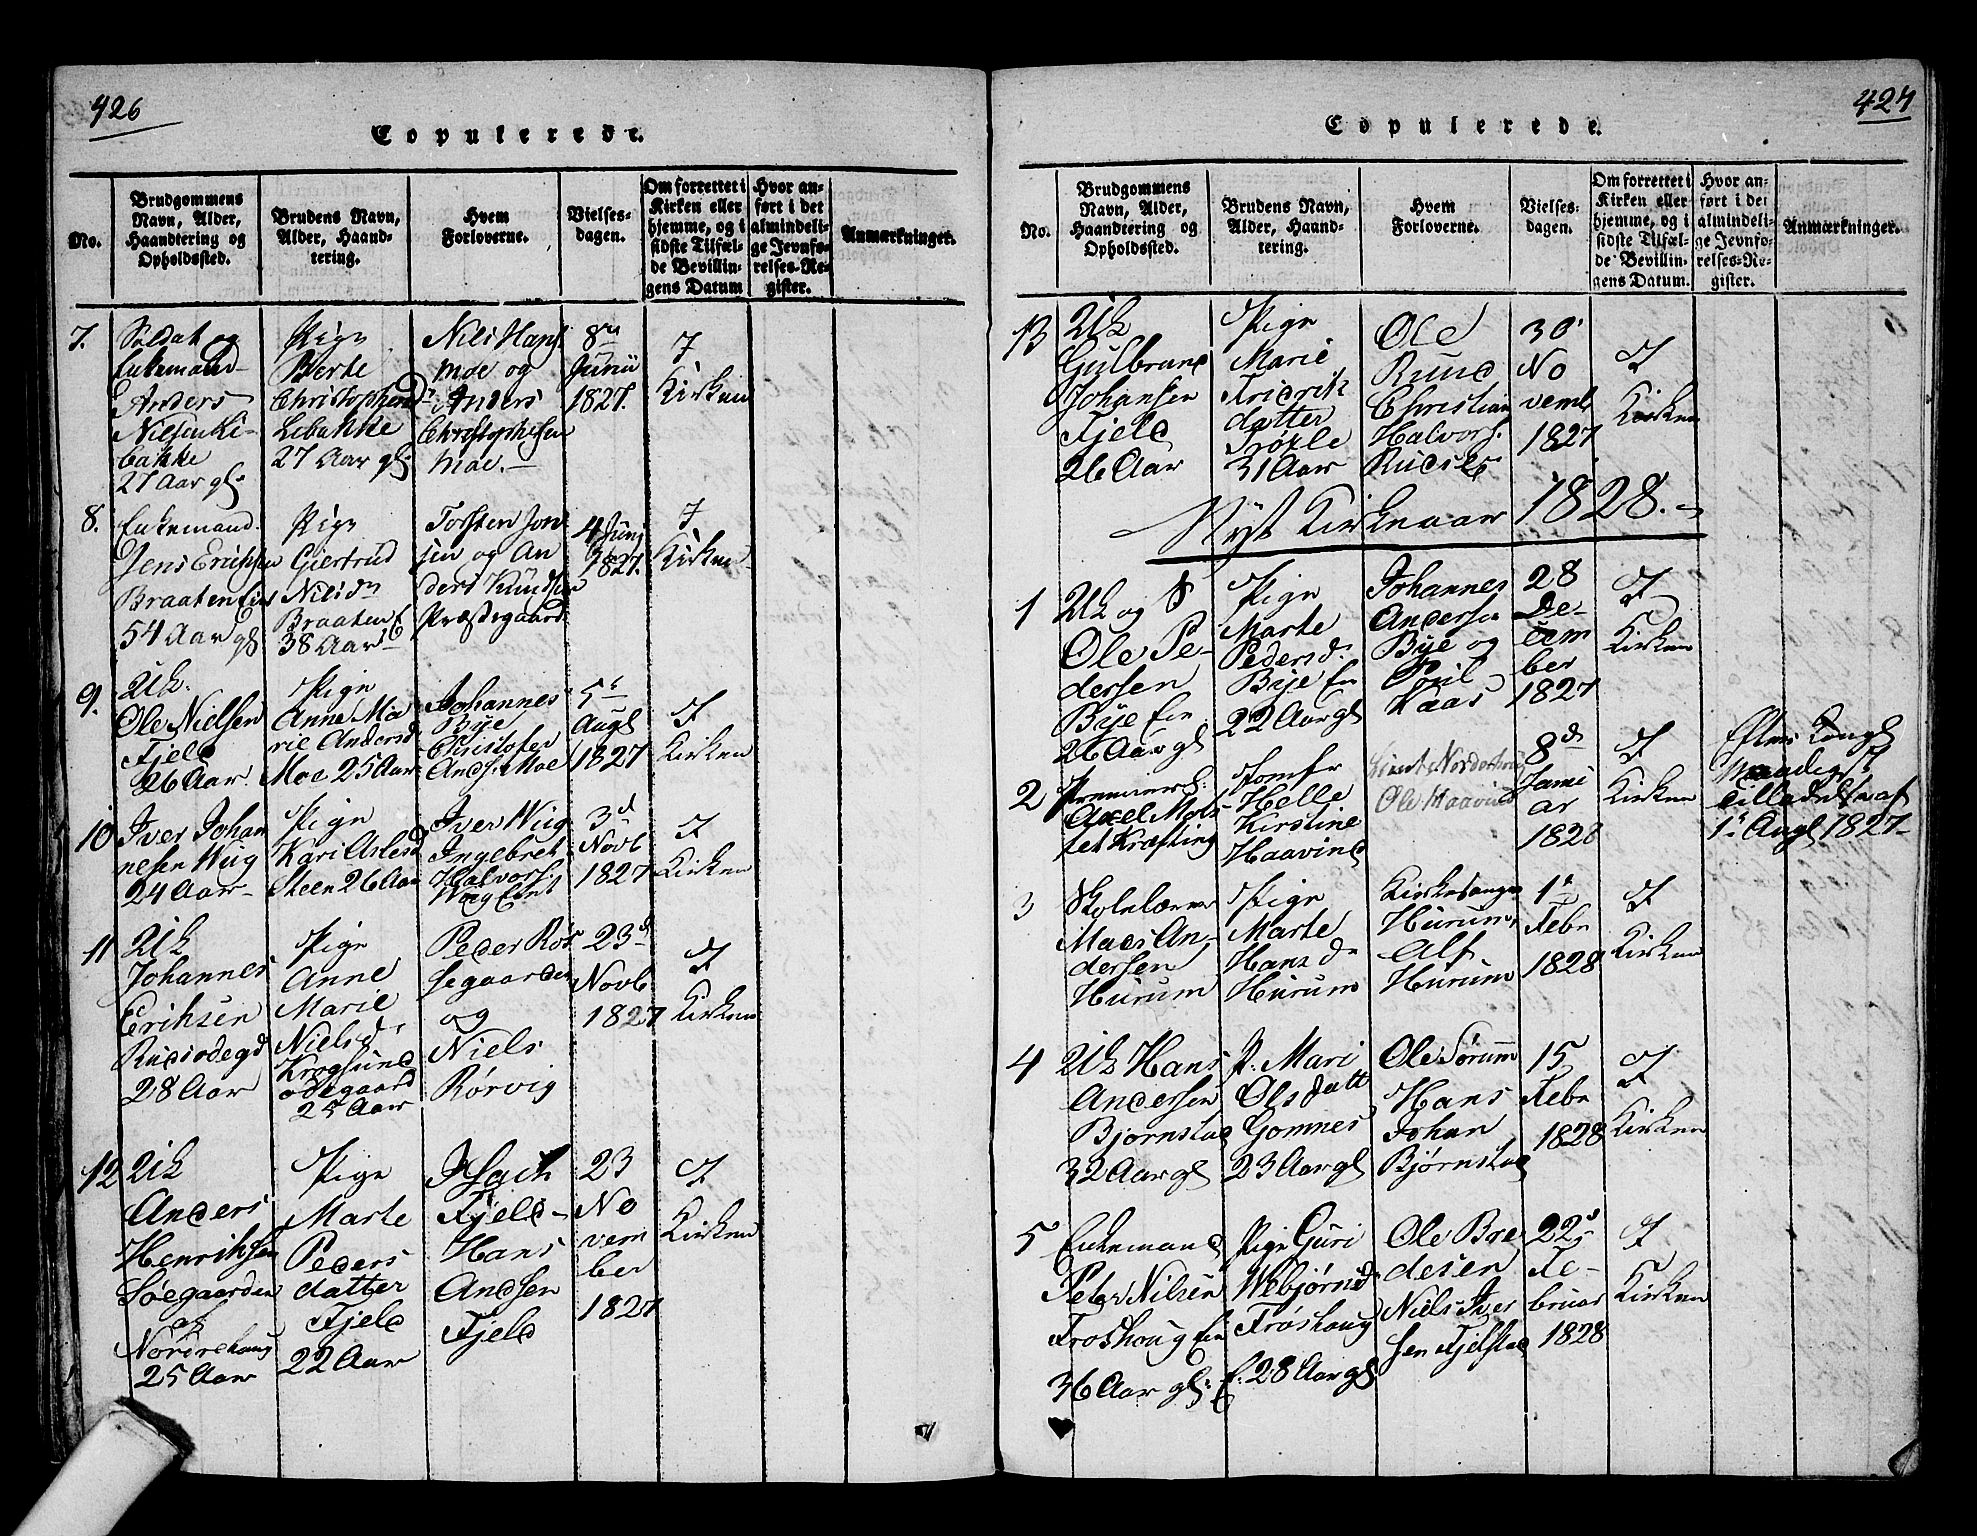 426
Copulerede.
No.
Brudgommens
Navn, Alder,
Haandtering og
Opholdssted.
Brudens Navn,
Alder, Haand-
tering.
Hvem
Forloverne.
Vielses-
dagen.
Om forrettet i
Kirken eller
hjemme, og i
sidste Tilfæl-
de Bevillin-
gens Datum
Hvor an-
ført i det
almindeli-
ge Jevnfø-
relses-Re-
gister.
Anmærkninger.
7.
Soldat og
Enkemand
Anders
Nilsen Li-
bakke
27 Aar gl.
Pige
Berte
Christophersd
Libakke
27 Aar gl.
Nils Hans
moe og
Anders
Christophersen
moe.
8de
Junii
1827.
I
Kirken
8.
Enkemand
Jens Erichsen
Braaten Eie
54 Aar gl
Pige
Giertrud
Nilsdr
Braaten E
38 Aar
Torsten Jon
sen og An
ders Knudsen
Præstegaard
4 Junj
1827.
I
Kirken
9.
Uk.
Ole Nielsen
Fjeld
26 Aar.
Pige
Anne Ma
rie Andersd
Moe 25 Aar
Johannes
Bye
Christofer
Ands. Moe
5t
Augt
1827
I
Kirken
10
Iver Johan
nesen Wiig
24 Aar
Pige
Kari Aslesd
Steen 26 Aar
Iver Wiig
Ingebret
Halvors.
Wiig Eiet
3d
Novb
1827
I
Kirken
11
Uk
Johannes
Erichsen
Rudsødegd
28 Aar
Pige
Anne
Marie
Nielsd.
Krogsund
ødegaard
25 Aar
Peder Røs
segaarden
og
Niels
Rørvig
23d
Novb
1827
I
Kirken
12
Uk
Anders
Henrichsen
Søegaarden
af
Norderhaug
25 Aar
Pige
Marte
Peders
datter
Fjeld
22 Aar
Isach
Fjeld
Hans
Andsen
Fjeld
23
No
vem
ber
1827
I
Kirken
427
Copulerede.
No.
Brudgommens
Navn, Alder,
Haandtering og
Opholdssted.
Brudens Navn,
Alder, Haand-
tering.
Hvem
Forloverne.
Vielses-
dagen.
Om forrettet i
Kirken eller
hjemme, og i
sidste Tilfæl-
de Bevillin-
gens Datum.
Hvor an-
ført i det
almindeli-
ge Jevnfø-
relses-Re-
gister.
Anmærkninger.
13
Uk
Gulbrand
Johansen
Fjeld
26 Aar
Pige
Marie
Fridrik
datter
31 Aar
Ole
Ruud
Christian
Halvors.
30
No
vemb
1827
I
Kirken
Nyt Kirkeaar 1828.
1
Uk og S
Ole Pe-
dersen
Bye Eie
26 Aar gl
Pige
Marte
Pedersd.
Bye Eie
22 Aar gl
Johannes
Andersen
Bye og
Poul
Kaas
28
De-
cem
ber
1827
I
Kirken
2
Premierl:
Axel Molt
Kræfting
Jomfr
Helle
Kirstine
Haavind
Ole Haavind
8d
Janu
ar
1828
I
Kirken
Efter Kongl
Tilladelse af
1t Augt 1827
3
Skolelærer
Mads An-
dersen
Hurum
Pige
Marte
Hansd
Hurum
Kirkesanger
Hurum,
Alf
Hurum
1t
Febr
1828
I
Kirken
4
Uk Hans
Andersen
Bjørnstad
32 Aar gl
P. Mari
Olsdatt
Gomnes
23 Aar gl
Ole Sørum
Hans
Johan
Bjørnstad
15
Febr
1828
I
Kirken
5
Enkemand
Peter Nilsen
Frøshoug Eie
36 Aar gl: E
Pige Guri
Webjørnsd
Frøshoug
E. 28 Aar gl
Ole Bre
desen
Niels Iver
sen Fjelstad
22d
Fe-
bruar
1828
I
Kirken